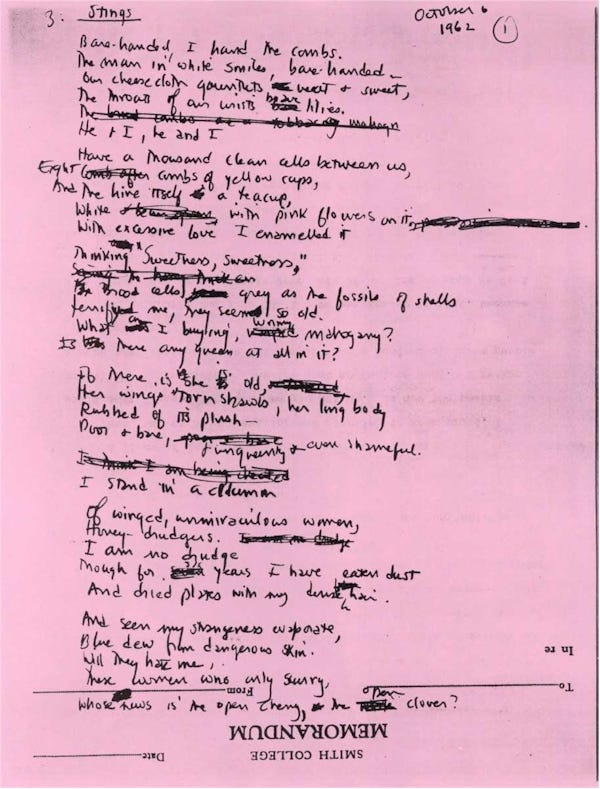 3. Stings
October 6
1962
1
Bare-handed, I hand the combs.
The man in white smiles, bare-handed—
Our cheesecloth gauntlets neat & sweet,
The throats of our wrists brave lilies.
He & I, he and I
Have a thousand clean cells between us,
Eight combs of yellow cups,
And the hive itself a teacup,
White with pink flowers on it,
With excessive love I enamelled it
Thinking "Sweetness, sweetness,"
Brood cells, grey as the fossils of shells
Terrified me, they seemed so old.
What am I buying, wormy mahogany?
Is there any queen at all in it?
If there is, she is old,
Her wings torn shawls, her long body
Rubbed of its plush—
Poor & bare, & unqueenly & even shameful.
I think I am being cheated
I stand in a column
Of winged, unmiraculous women,
Honey-drudgers.
I am no drudge
Though for years I have eaten dust
And dried plates with my dense hair.
And seen my strangeness evaporate,
Blue dew from dangerous skin.
Will they hate me,
These women who only scurry,
Whose news is the open cherry, the open clover?
In re
To
From
MEMORANDUM
SMITH COLLEGE
Date